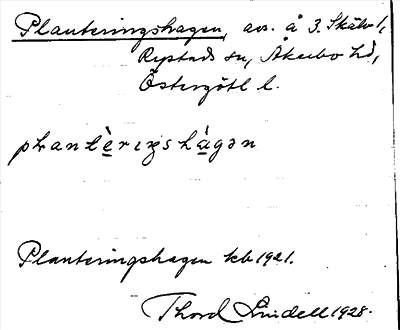 Planteringshagen, avs. å 3. Skälv 1,
Rystads sn, Åkerbo hd,
Östergötl l.
plantèriŋshàgən
Planteringshagen kb 1921.
Thord Lindell 1928.